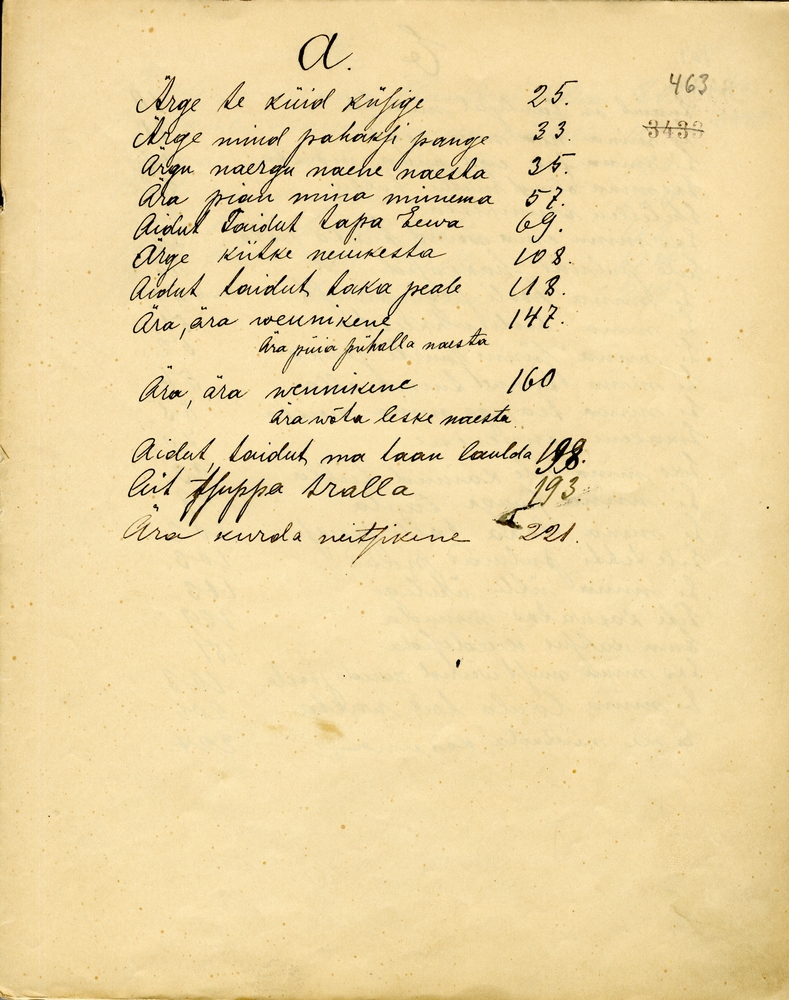 A.
463
3433
Ärge te küid küsige 25.
Ärge mind pahaksi pange 33.
Ärgu naergu naene naesta 35.
Ära pian mina minema 57.
Aidut Taidut tapa Eewa 69.
Ärge kiitke neiukesta 108.
Aidut taidut taka peale 118.
Ära, ära wennikene 147.
Ära püia pühalla naesta
Ära, ära wennikene 160
Ära wõta leske naesta
Aidut, taidut ma taan laulda
tralla 193.
Ära kurda neitsikene 221.